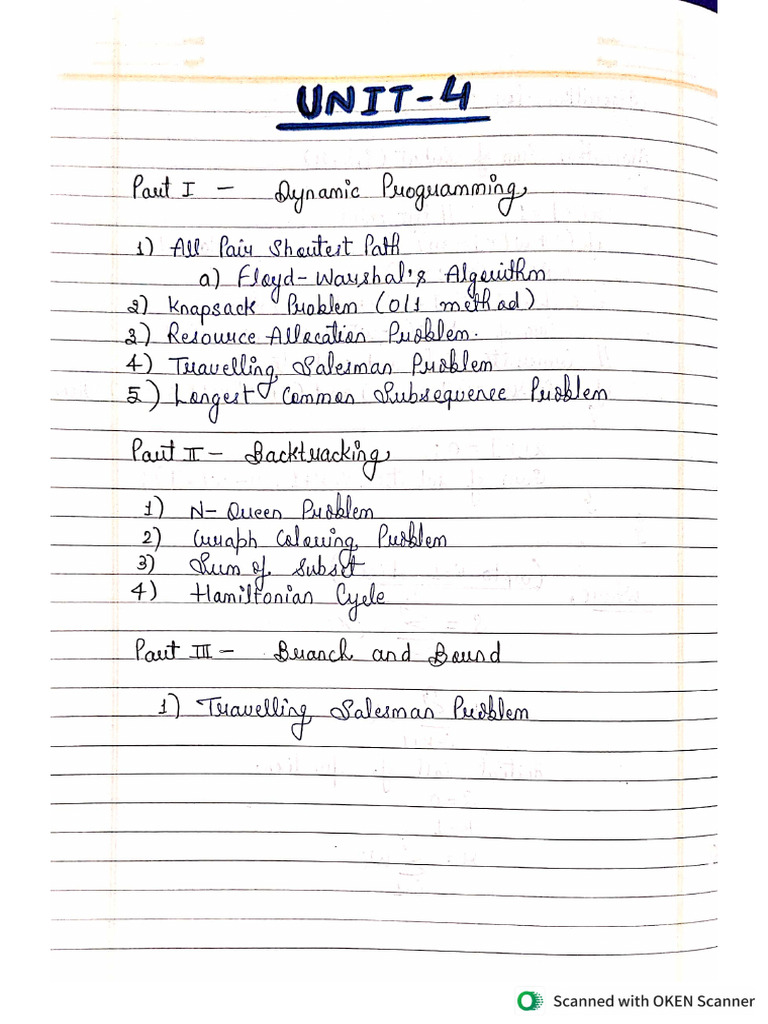 UNIT-4
Part I - Dynamic Programming
1) All Pair Shortest Path
a) Floyd-Warshal's Algorithm
2) Knapsack Problem (0/1 method)
3) Resource Allocation Problem.
4) Travelling Salesman Problem
5) Longest Common Subsequence Problem
Part II - Backtracking
1) N-Queen Problem
2) Graph Colouring Problem
3) Sum of Subset
4) Hamiltonian Cycle
Part III - Branch and Bound
1) Travelling Salesman Problem
Scanned with OKEN Scanner